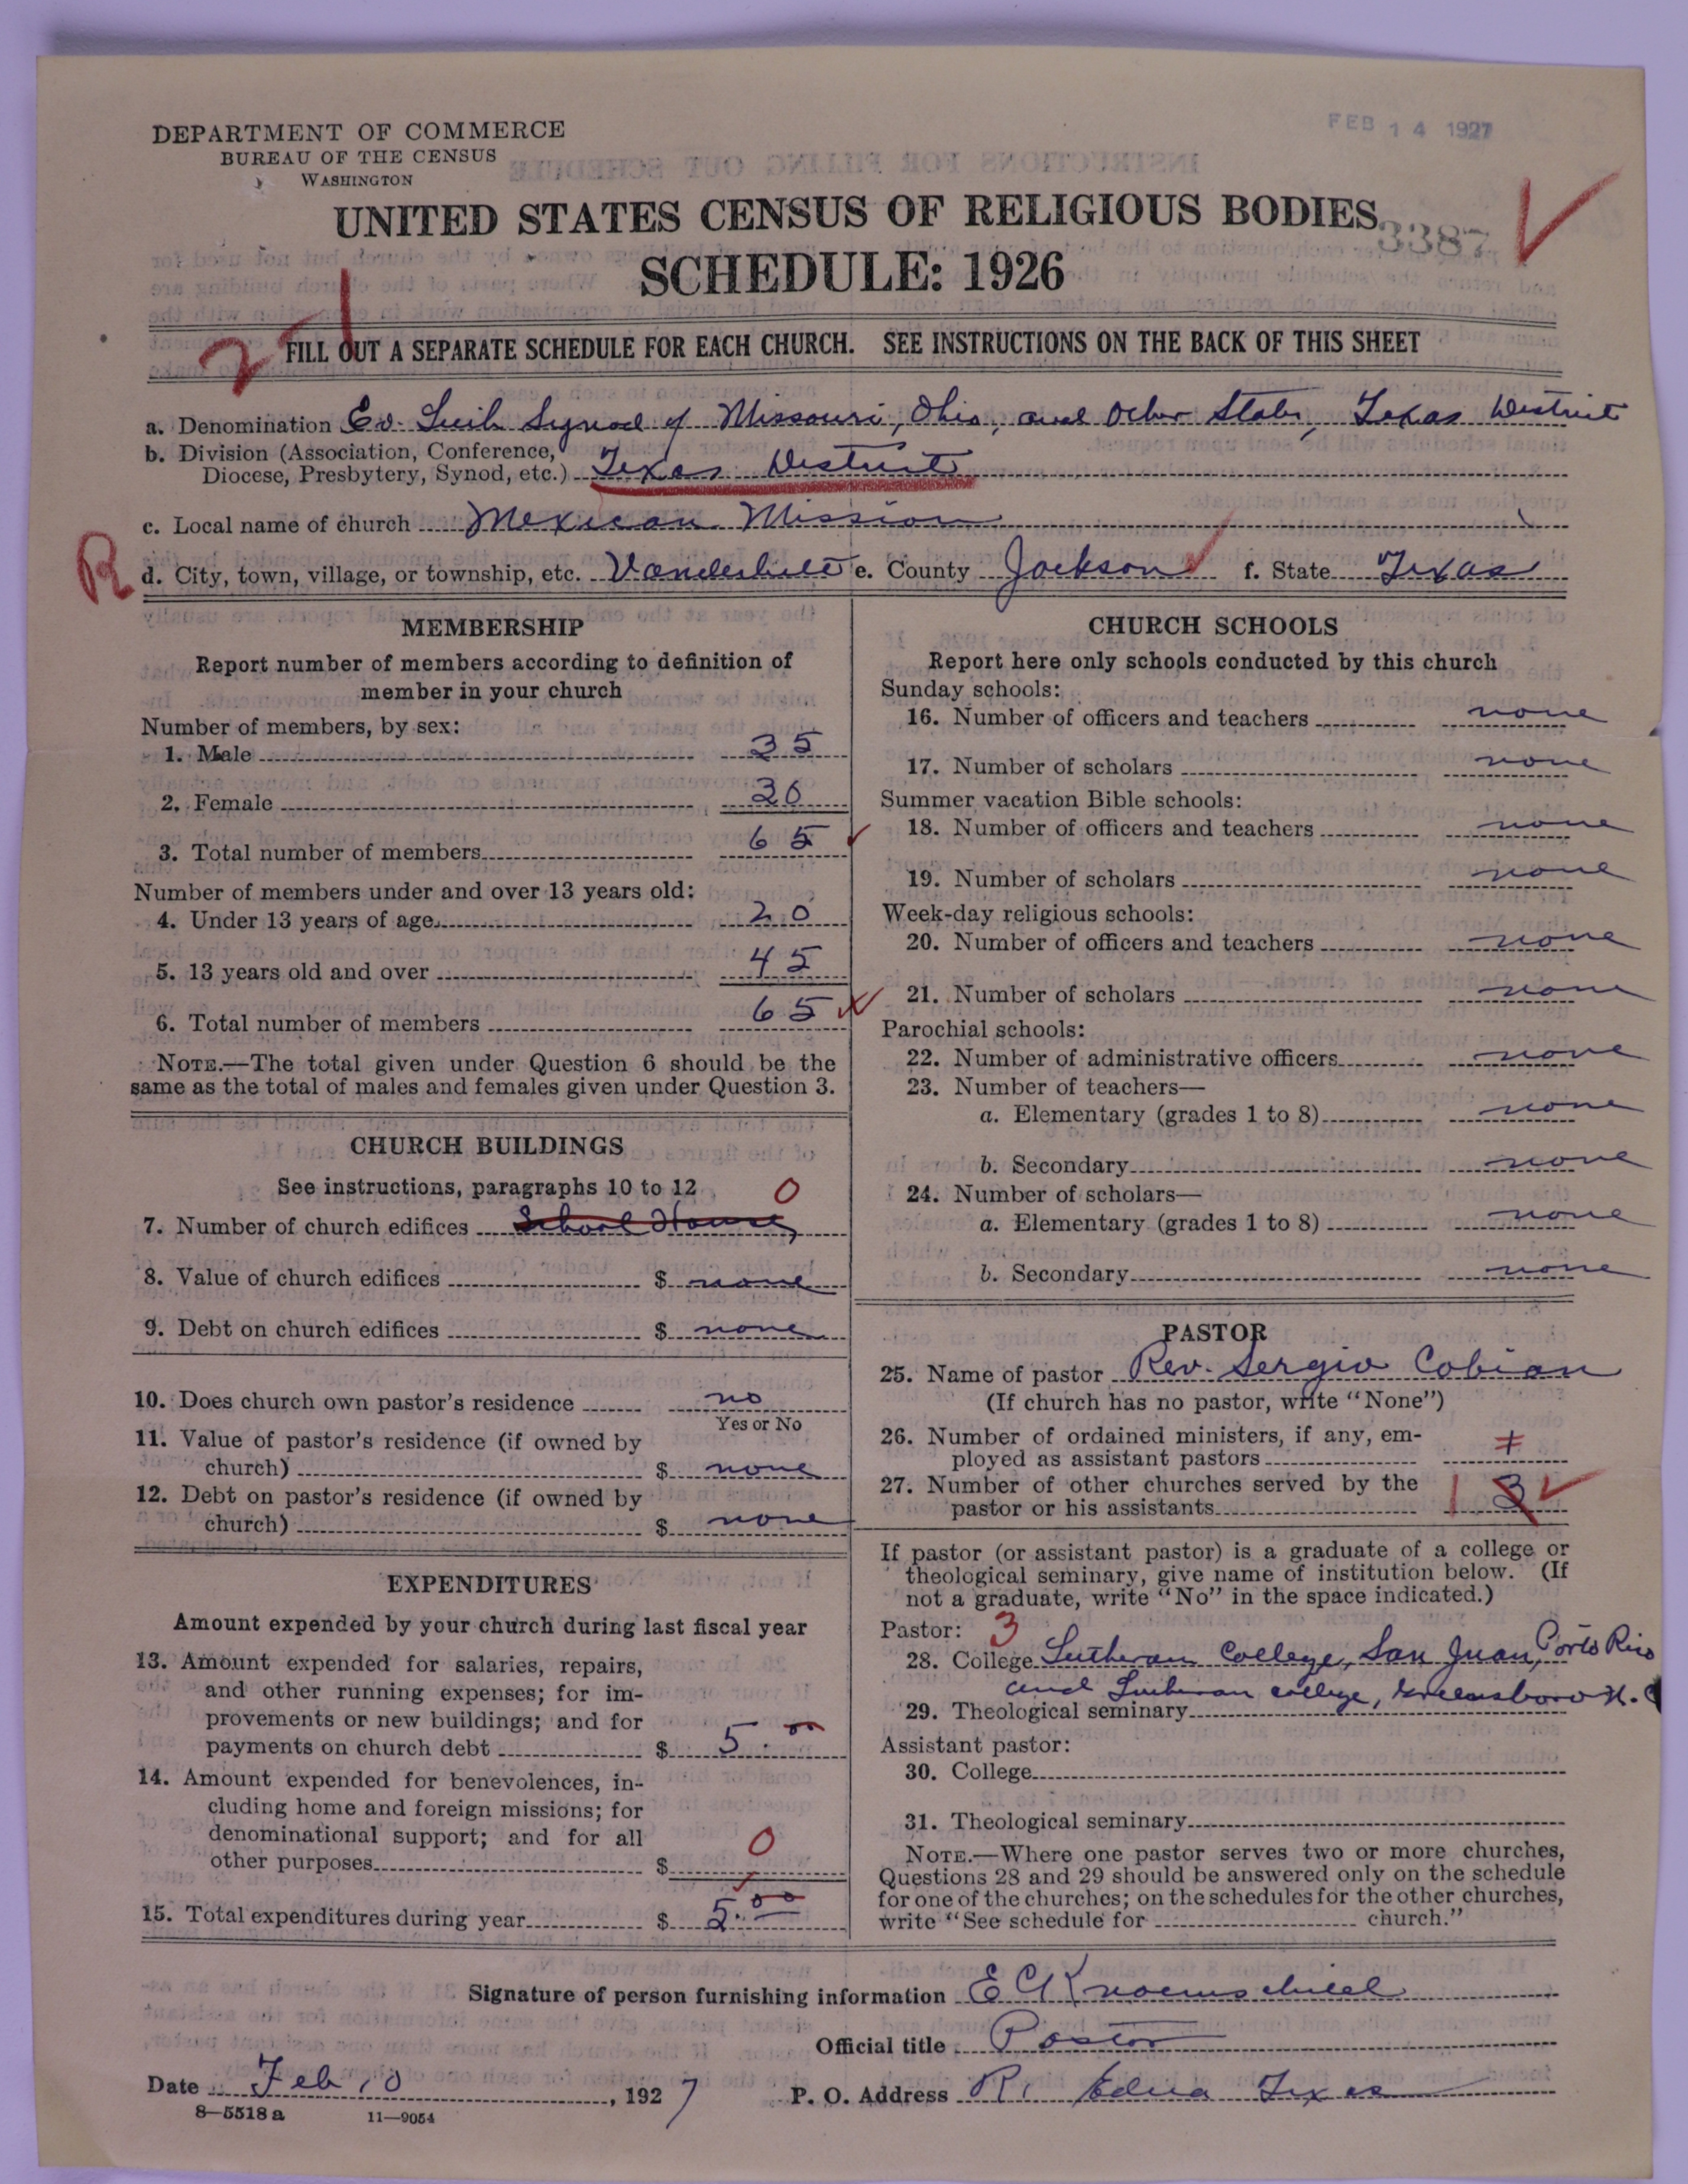 DEPARTMENT OF COMMERCE
BUREAU OF THE CENSUS
WASHINGTON
FEB 14 1927
UNITED STATES CENSUS OF RELIGIOUS BODIES
3387
SCHEDULE: 1926
2 1
FILL OUT A SEPARATE SCHEDULE FOR EACH CHURCH. SEE INSTRUCTIONS ON THE BACK OF THIS SHEET
a. Denomination Ev. Luth Synod of Missouri, Ohio, and Other States, Texas District
b. Division (Association, Conference,
Diocese, Presbytery, Synod, etc.) Texas District
c. Local name of church Mexican Mission
R
d. City, town, village, or township, etc. Vanderbilt e. County Jackson f. State Texas
MEMBERSHIP
Report number of members according to definition of
member in your church
Number of members, by sex:
1. Male 35
2. Female 30
3. Total number of members 65
Number of members under and over 13 years old:
4. Under 13 years of age 20
5. 13 years old and over 45
6. Total number of members 65
NOTE.—The total given under Question 6 should be the
same as the total of males and females given under Question 3.
CHURCH BUILDINGS
See instructions, paragraphs 10 to 12 0
7. Number of church edifices School House
8. Value of church edifices $ none
9. Debt on church edifices $ none
10. Does church own pastor's residence no
Yes or No
11. Value of pastor's residence (if owned by
church) $ none
12. Debt on pastor's residence (if owned by
church) $ none
EXPENDITURES
Amount expended by your church during last fiscal year
13. Amount expended for salaries, repairs,
and other running expenses; for im-
provements or new buildings; and for
payments on church debt $ 5.00
14. Amount expended for benevolences, in-
cluding home and foreign missions; for
denominational support; and for all
other purposes $ 0
15. Total expenditures during year $ 5.00
CHURCH SCHOOLS
Report here only schools conducted by this church
Sunday schools:
16. Number of officers and teachers none
17. Number of scholars none
Summer vacation Bible schools:
18. Number of officers and teachers none
19. Number of scholars none
Week-day religious schools:
20. Number of officers and teachers none
21. Number of scholars none
Parochial schools:
22. Number of administrative officers none
23. Number of teachers—
a. Elementary (grades 1 to 8) none
b. Secondary none
24. Number of scholars—
a. Elementary (grades 1 to 8) none
b. Secondary none
PASTOR
25. Name of pastor Rev. Sergio Cobian
(If church has no pastor, write "None")
26. Number of ordained ministers, if any, em-
ployed as assistant pastors
27. Number of other churches served by the
pastor or his assistants 1 3
If pastor (or assistant pastor) is a graduate of a college or
theological seminary, give name of institution below. (If
not a graduate, write "No" in the space indicated.)
Pastor: 3
28. College Lutheran College, San Juan, Porto Rico
and Lutheran college, Greensboro N. C
29. Theological seminary
Assistant pastor:
30. College
31. Theological seminary
NOTE.—Where one pastor serves two or more churches,
Questions 28 and 29 should be answered only on the schedule
for one of the churches; on the schedules for the other churches,
write "See schedule for church."
Signature of person furnishing information E C Knoernschild
Official title Pastor
Date Feb 10, 1927 P. O. Address R1 Edna Texas
8—5518 a 11—9054